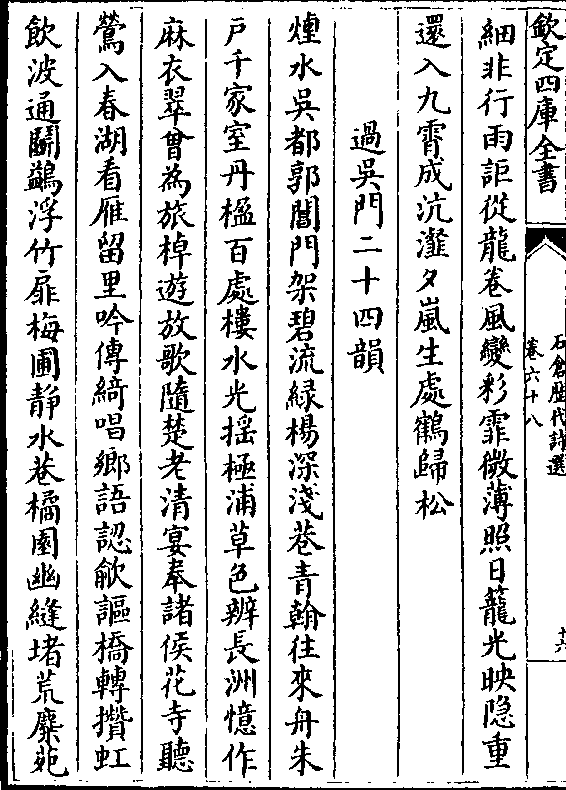 欽定四庫全書
石倉歴代詩選
卷六十八
十六
細非行雨詎從龍卷風變彩霏微薄照日籠光映隐重
還入九霄成沆瀣夕嵐生處鶴歸松
過吳門二十四韻
煙水吳都郭閶門架碧流緑楊深淺巷青翰往來舟朱
戸千家室丹楹百處樓水光揺極浦草色辨長洲憶作
麻衣翠曾為旅棹遊放歌隨楚老清宴奉諸侯花寺聽
鶯入春湖看雁留里吟傳綺唱鄉語認歈謳橋轉攢虹
飲波通鬬鷁浮竹扉梅圃静水巷橘園幽縫堵荒麋苑